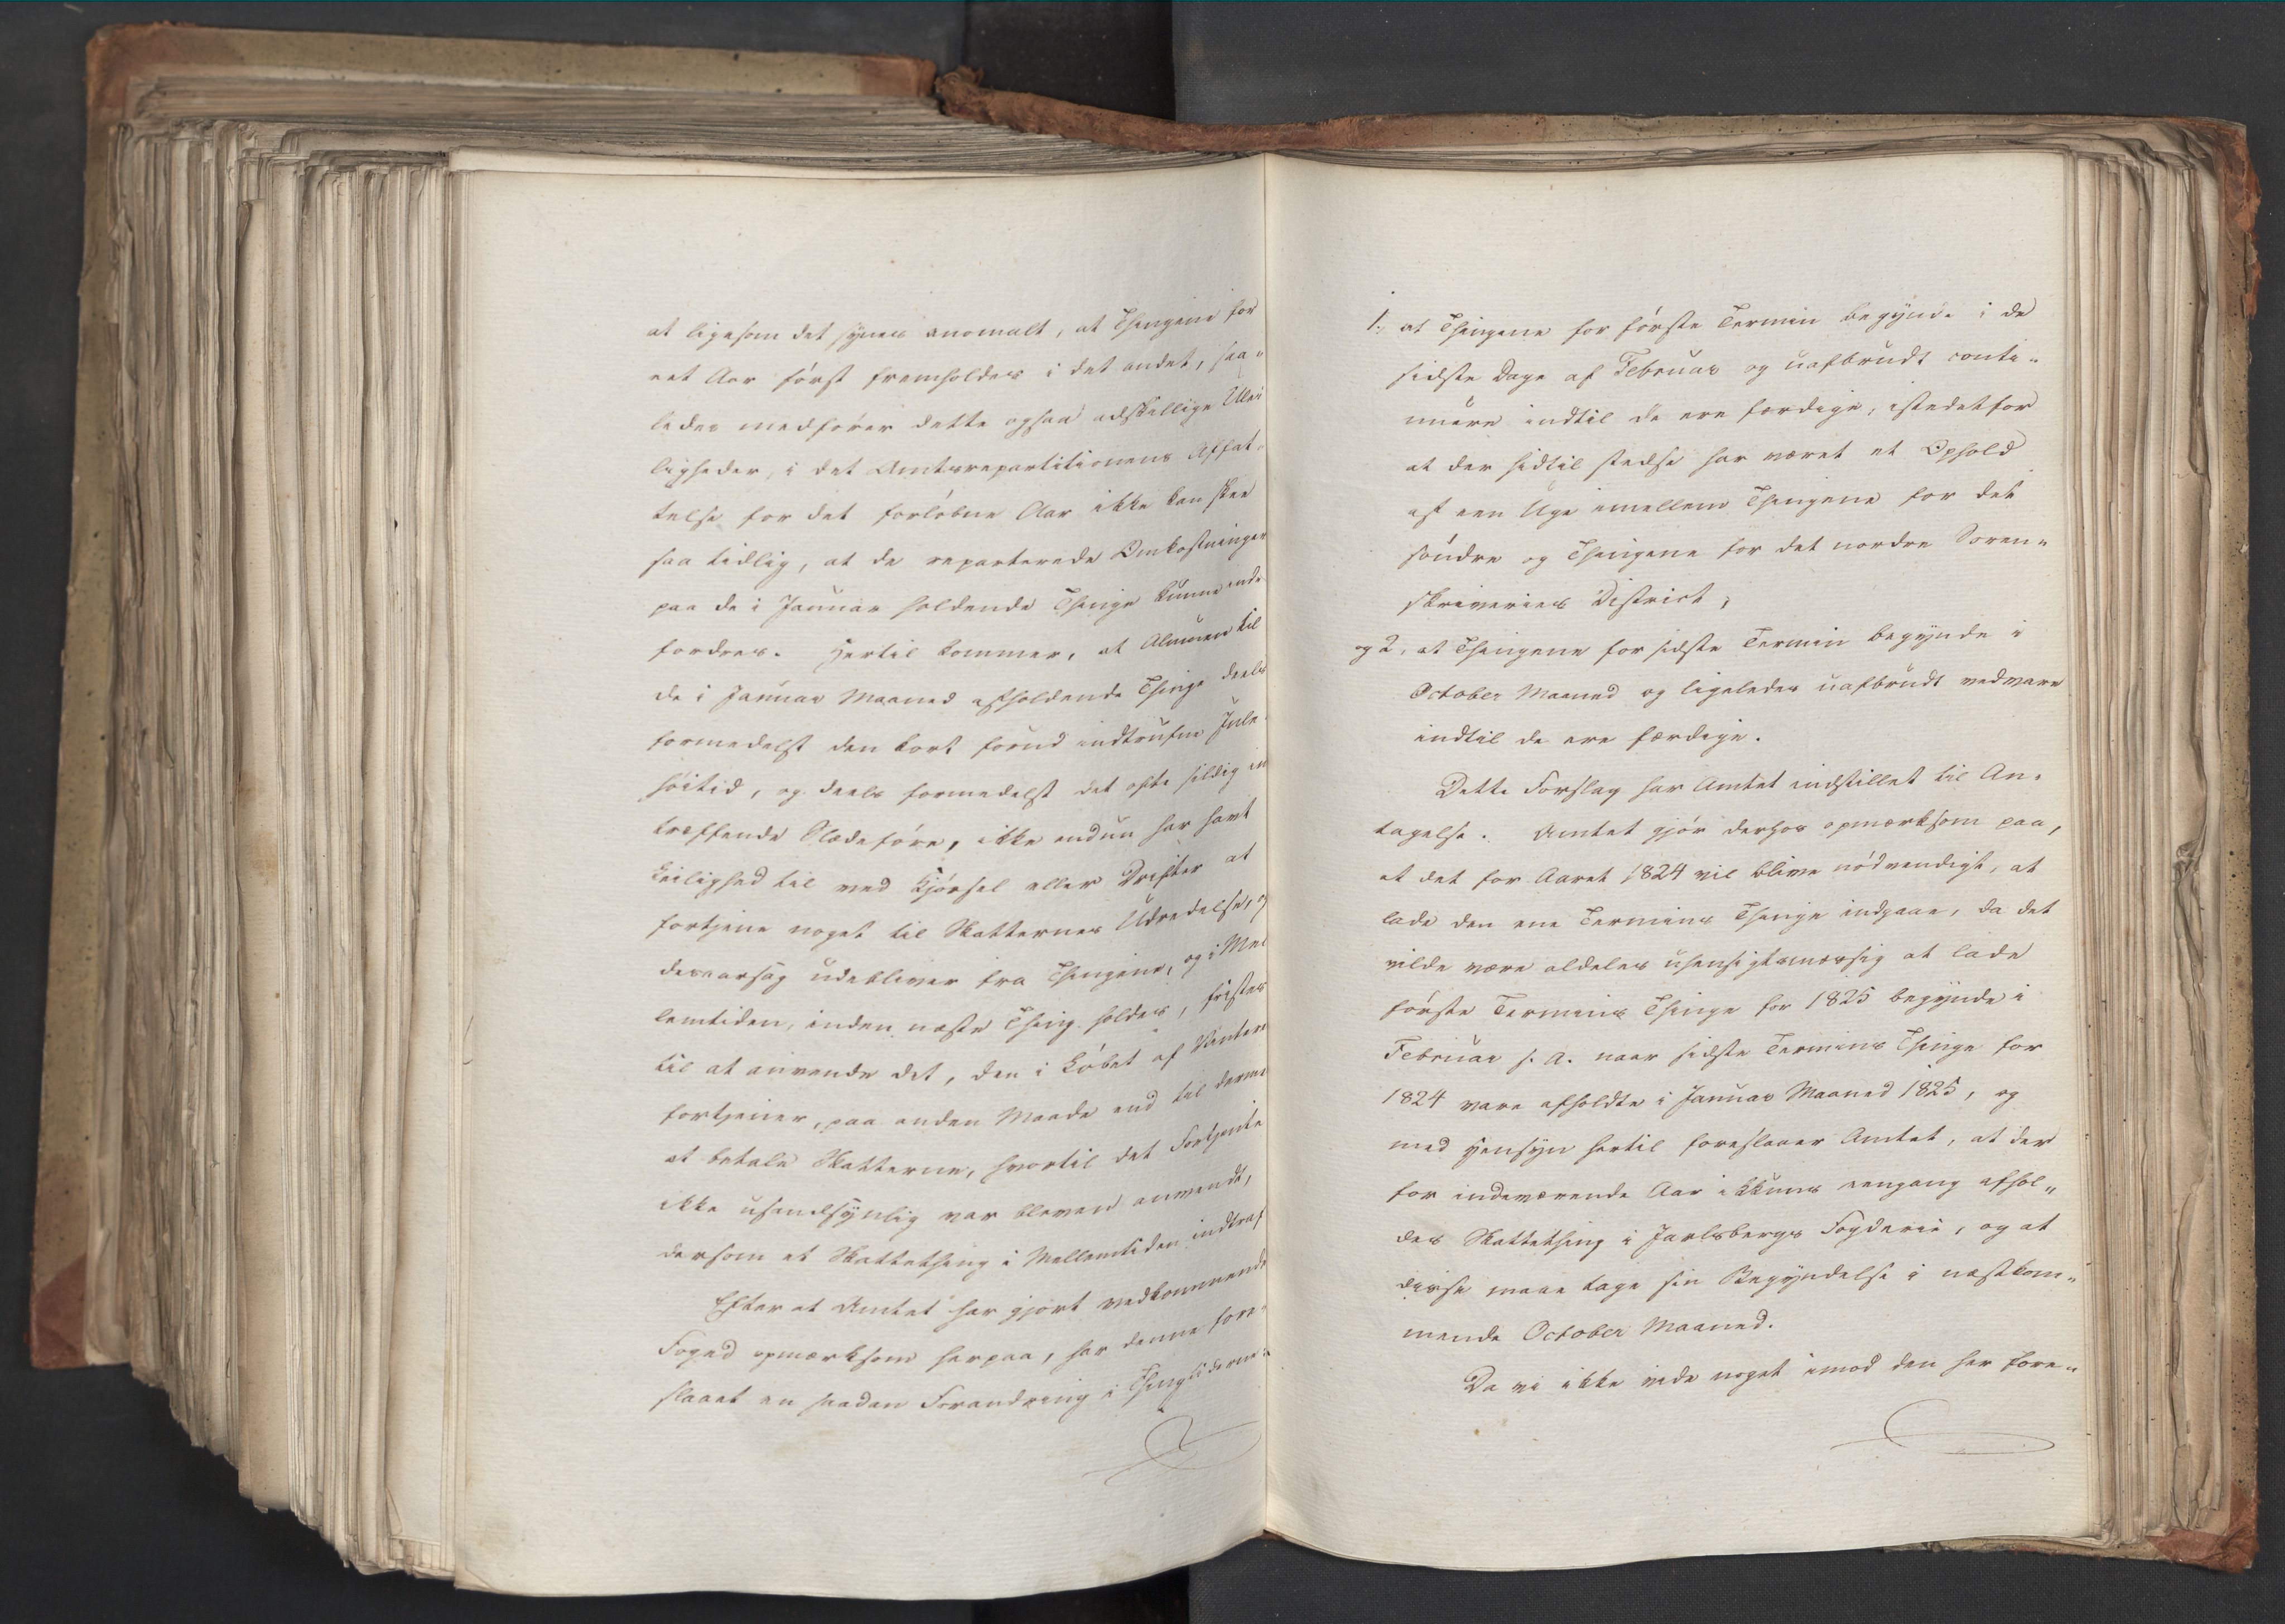 at ligesom det synes anomalt, at Thingene for
eet Aar først fremholdes i det andet, saa-
ledes medfører dette ogsaa adskillige Ulei-
ligheder, i det Amtsrepartitionens Affat-
telse for det forløbne Aar ikke kan skee
saa tidlig, at de reparterede Omkostninger
paa de i Januar holdende Thinge kunne ind-
fordres. Hertil kommer, at Almuen til
de i Januar Maaned afholdende Thinge deels
formedelst den kort forud indtrufne Jule-
høitid, og deels formedelst det ofte sildig ind
træffende Slædeføre, ikke endnu har havt
Leilighed til ved Kjørsel eller Drifter at
fortjene noget til Skatternes Udredelse, og
desaarsag udebliver fra Thingene, og i Mel
lemtiden, inden næste Thing holdes, fristes
til at anvende det, den i Løbet af Vinteren
fortjener, paa anden Maade end til dermed
at betale Skatterne, hvortil det Fortjente
ikke usandsynlig var bleven anvendt,
dersom et Skattething i Mellemtiden indtraf.
Efter at Amtet har gjort vedkommende
Foged opmærksom herpaa, har denne fore-
slaaet en saadan Forandring i Thingtiderne:
1, at Thingene for første Termin begynde i de
sidste Dage af Februar og uafbrudt conti-
nuere indtil de ere færdige, istedetfor
at der hidtil stedse har været et Ophold
af een Uge imellem Thingene for det
søndre og Thingene for det nordre Soren-
skriveries District;
og 2, at Thingene for sidste Termin begynde i
October Maaned og ligeledes uafbrudt vedvare
indtil de ere færdige.
Dette Forslag har Amtet indstillet til An-
tagelse. Amtet gjør derhos opmærksom paa,
at det for Aaret 1824 vil blive nødvendigt, at
lade den ene Termins Thinge indgaae, da det
vilde være aldeles uhensigtsmæssig at lade
første Termins Thinge for 1825 begynde i
Februar s. A. naar sidste Termins Thinge for
1824 vare afholdte i Januar Maaned 1825, og
med Hensyn hertil foreslaaer Amtet, at der
for indeværende Aar ikkuns eengang afhol-
des Skattething i Jarlsbergs Fogderie, og at
disse maae tage sin Begyndelse i næstkom-
mende October Maaned.
Da vi ikke vide noget imod den her fore-